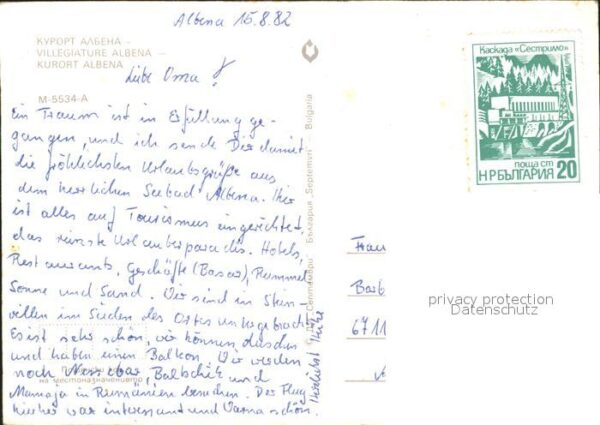 Albena 15.8.82
КУРОРТ АЛБЕНА -
VILLEGIATURE ALBENA -
KURORT ALBENA
M-5534-A
Liebe Oma!
Ein Traum ist in Erfüllung ge-
gangen, und ich sende Dir damit
die fröhlichsten Urlaubsgrüße aus
dem herrlichen Seebad Albena. Hier
ist alles auf Tourismus eingerichtet,
das reinste Urlauberparadis. Hotels,
Restaurants, Geschäfte (Basar), Rummel
Sonne und Sand. Wir sind in Stein-
villen im Süden des Ortes untergebracht
Es ist sehr schön, wir können duschen
und haben einen Balkon. Wir werden
noch Nessebar, Baltschik und
Mamaja in Rumänien besuchen. Der Flug
hierher war interessant und Varna schön.
Herzlichst
на местоназначението
Септември България „Septemvri" Bulgaria
Каскада „Сестримо"
поща ст
НР БЪЛГАРИЯ 20
Frau
Barb
6711
privacy protection
Datenschutz